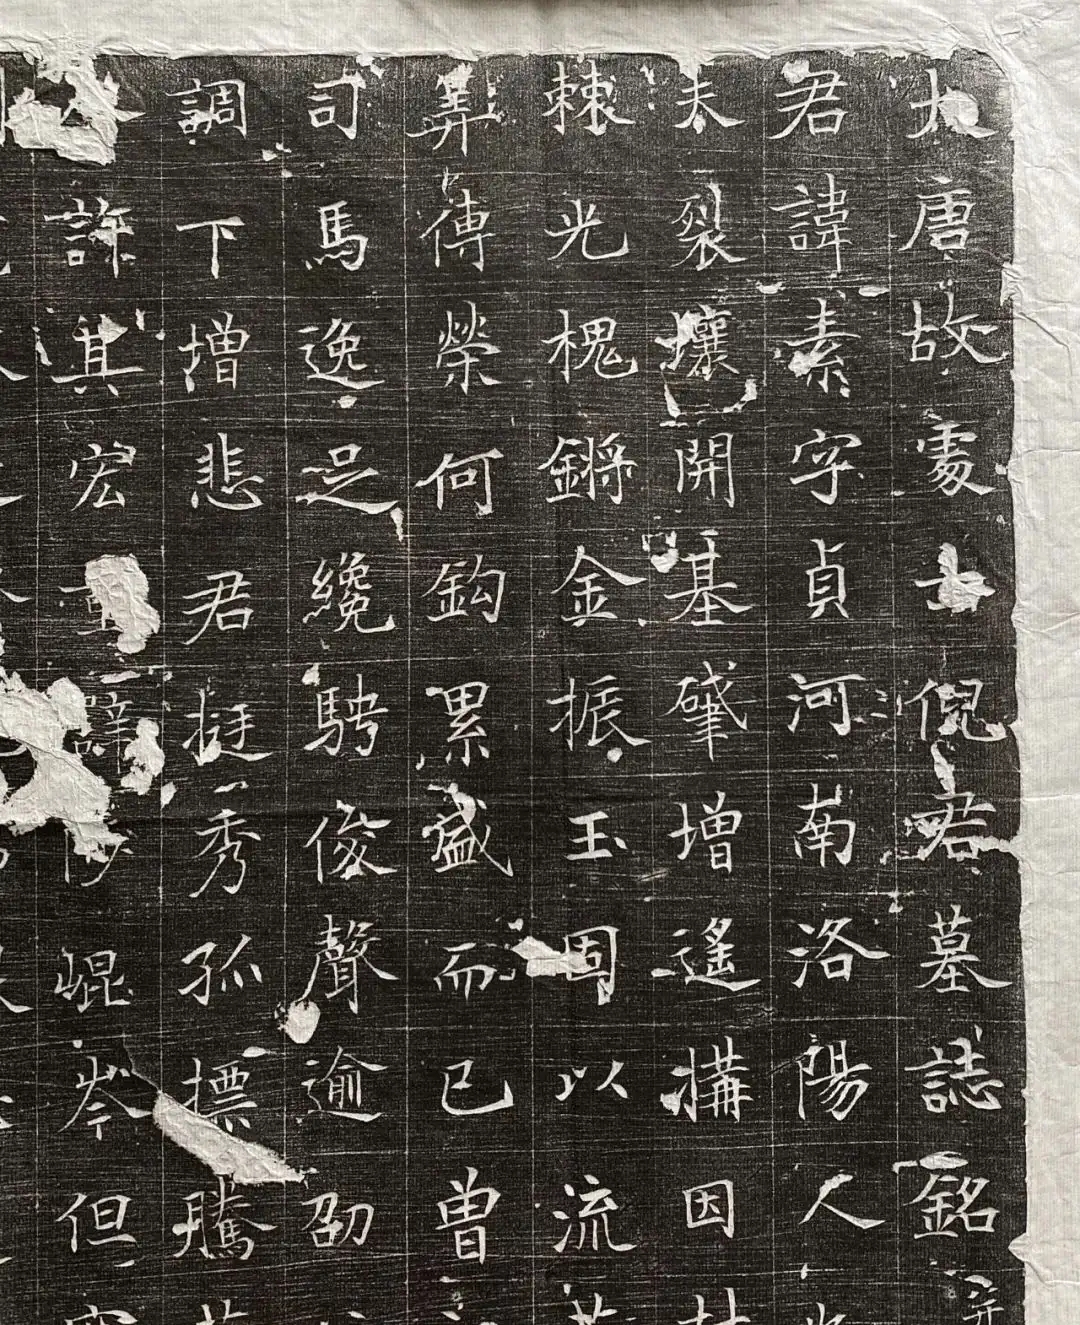 大唐故處士倪君墓誌銘并
君諱素字貞河南洛陽人
夫裂壤開基肇增遙構因
棘光槐鏘金振玉固以流
弈傳榮何鈎累盛而已曽
司馬逸足纔騁俊聲逾劭
調下增悲君挺秀孤標騰
許其宏 崐岑但